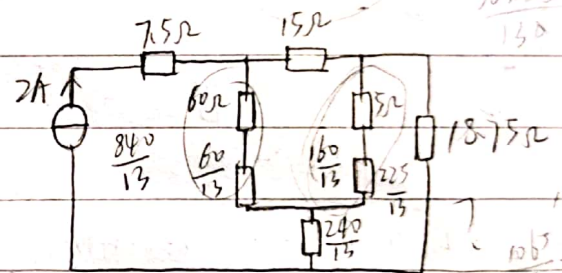 7.5Ω 15Ω
2A
60Ω 5Ω 18.75Ω
840/13 60/13 160/13 225/13
240/13